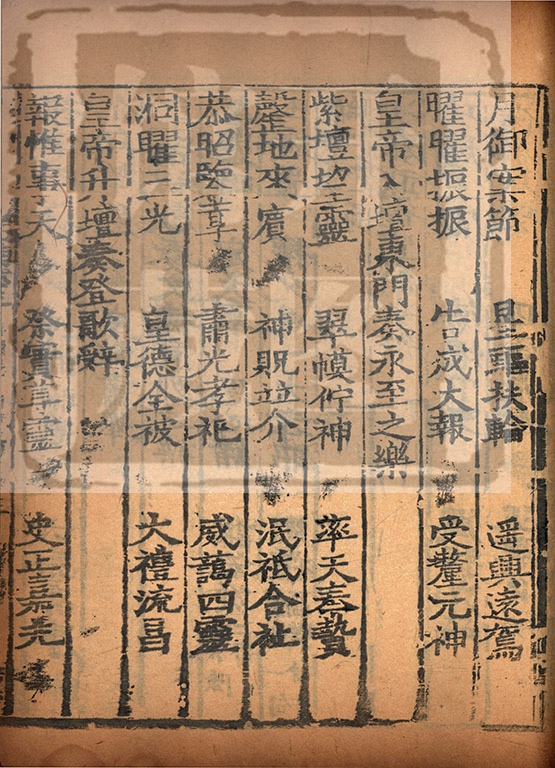 月御案節 星驅扶輪 遥興遠駕
曜曜振振 告成大報 受釐元神
皇帝入壇東門奏永至之樂
紫壇望靈 翠幙佇神 率天奉贄
罄地來賓 神貺竝介 泯祗合祉
恭昭鑒享 肅光孝祀 威藹四靈
洞曜三光 皇德全被 大禮流昌
皇帝升壇奏登歌辭
報惟事天 祭實尊靈 史正嘉兆